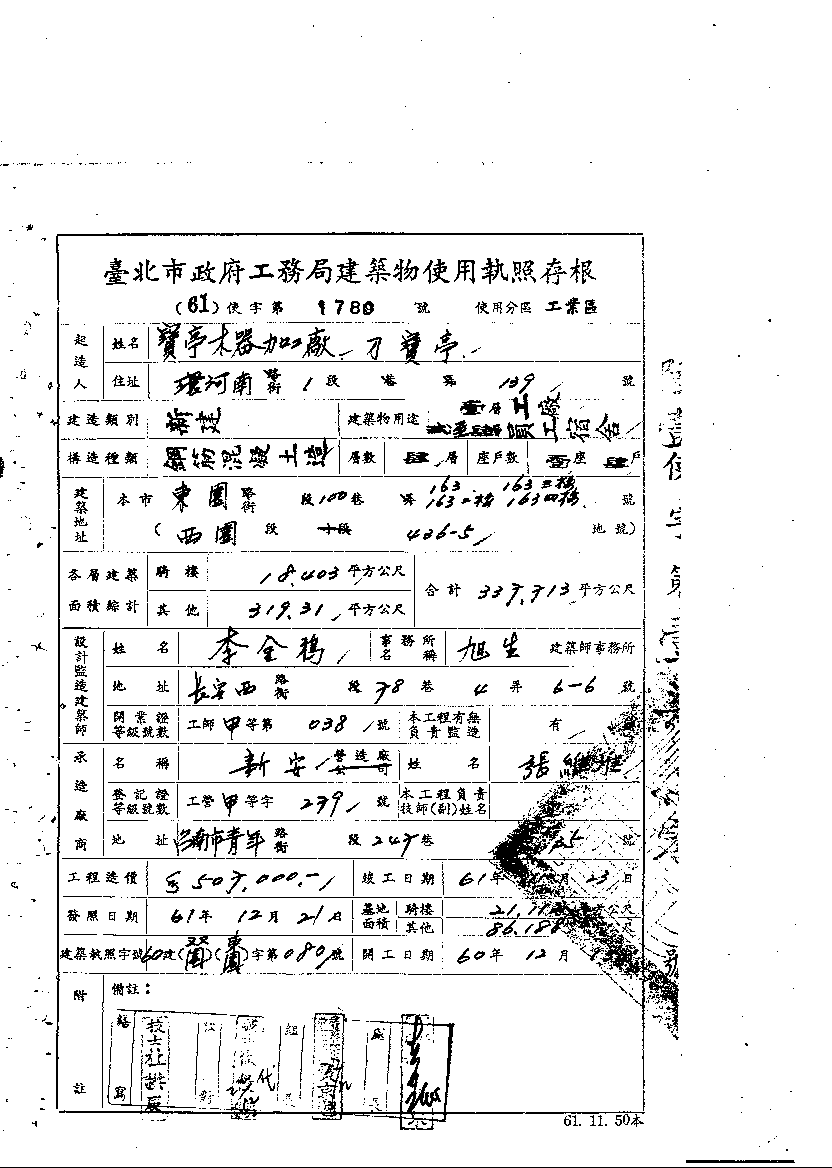 臺北市政府工務局建築物使用執照存根
(61)使字第 1780 號 使用分區 工業區
起造人 姓名 寶亭木器加工廠 刁寶亭
住址 環河南 路街 1 段 巷 弄 139 號
建造類別 新建 建築物用途 壹層工廠 員工宿舍
構造種類 鋼筋混凝土造 層數 肆層 座戶數 壹座 肆戶
建築地址 本市 東園 路街 段 100 巷 弄 163. 163二樓 163三樓 163四樓 號
(西園 段 小段 436-5 地號)
各層建築面積綜計 騎樓 18.403 平方公尺 合計 337.713 平方公尺
其他 319.31 平方公尺
設計監造建築師 姓名 李全 事務所名稱 旭生 建築師事務所
地址 長安西 路街 段 78 巷 4 弄 6-6 號
開業證等級號數 工師甲等第 038 號 本工程有無負責監造 有
承造廠商 名稱 新安 營造廠公司 姓名 張維
登記證等級號數 工營甲等字 239 號 本工程負責技師(副)姓名
地址 台南市青年 路街 段 247 巷 號
工程造價 507,000.- 竣工日期 61年 月 23日
發照日期 61年 12月 21日 基地面積 騎樓 21.11 平方公尺
其他 86.188 公尺
建築執照字號 60建( )( )字第080號 開工日期 60年 12月
附註 備註:
繕寫 校對 組長 處長
代
61. 11. 50本